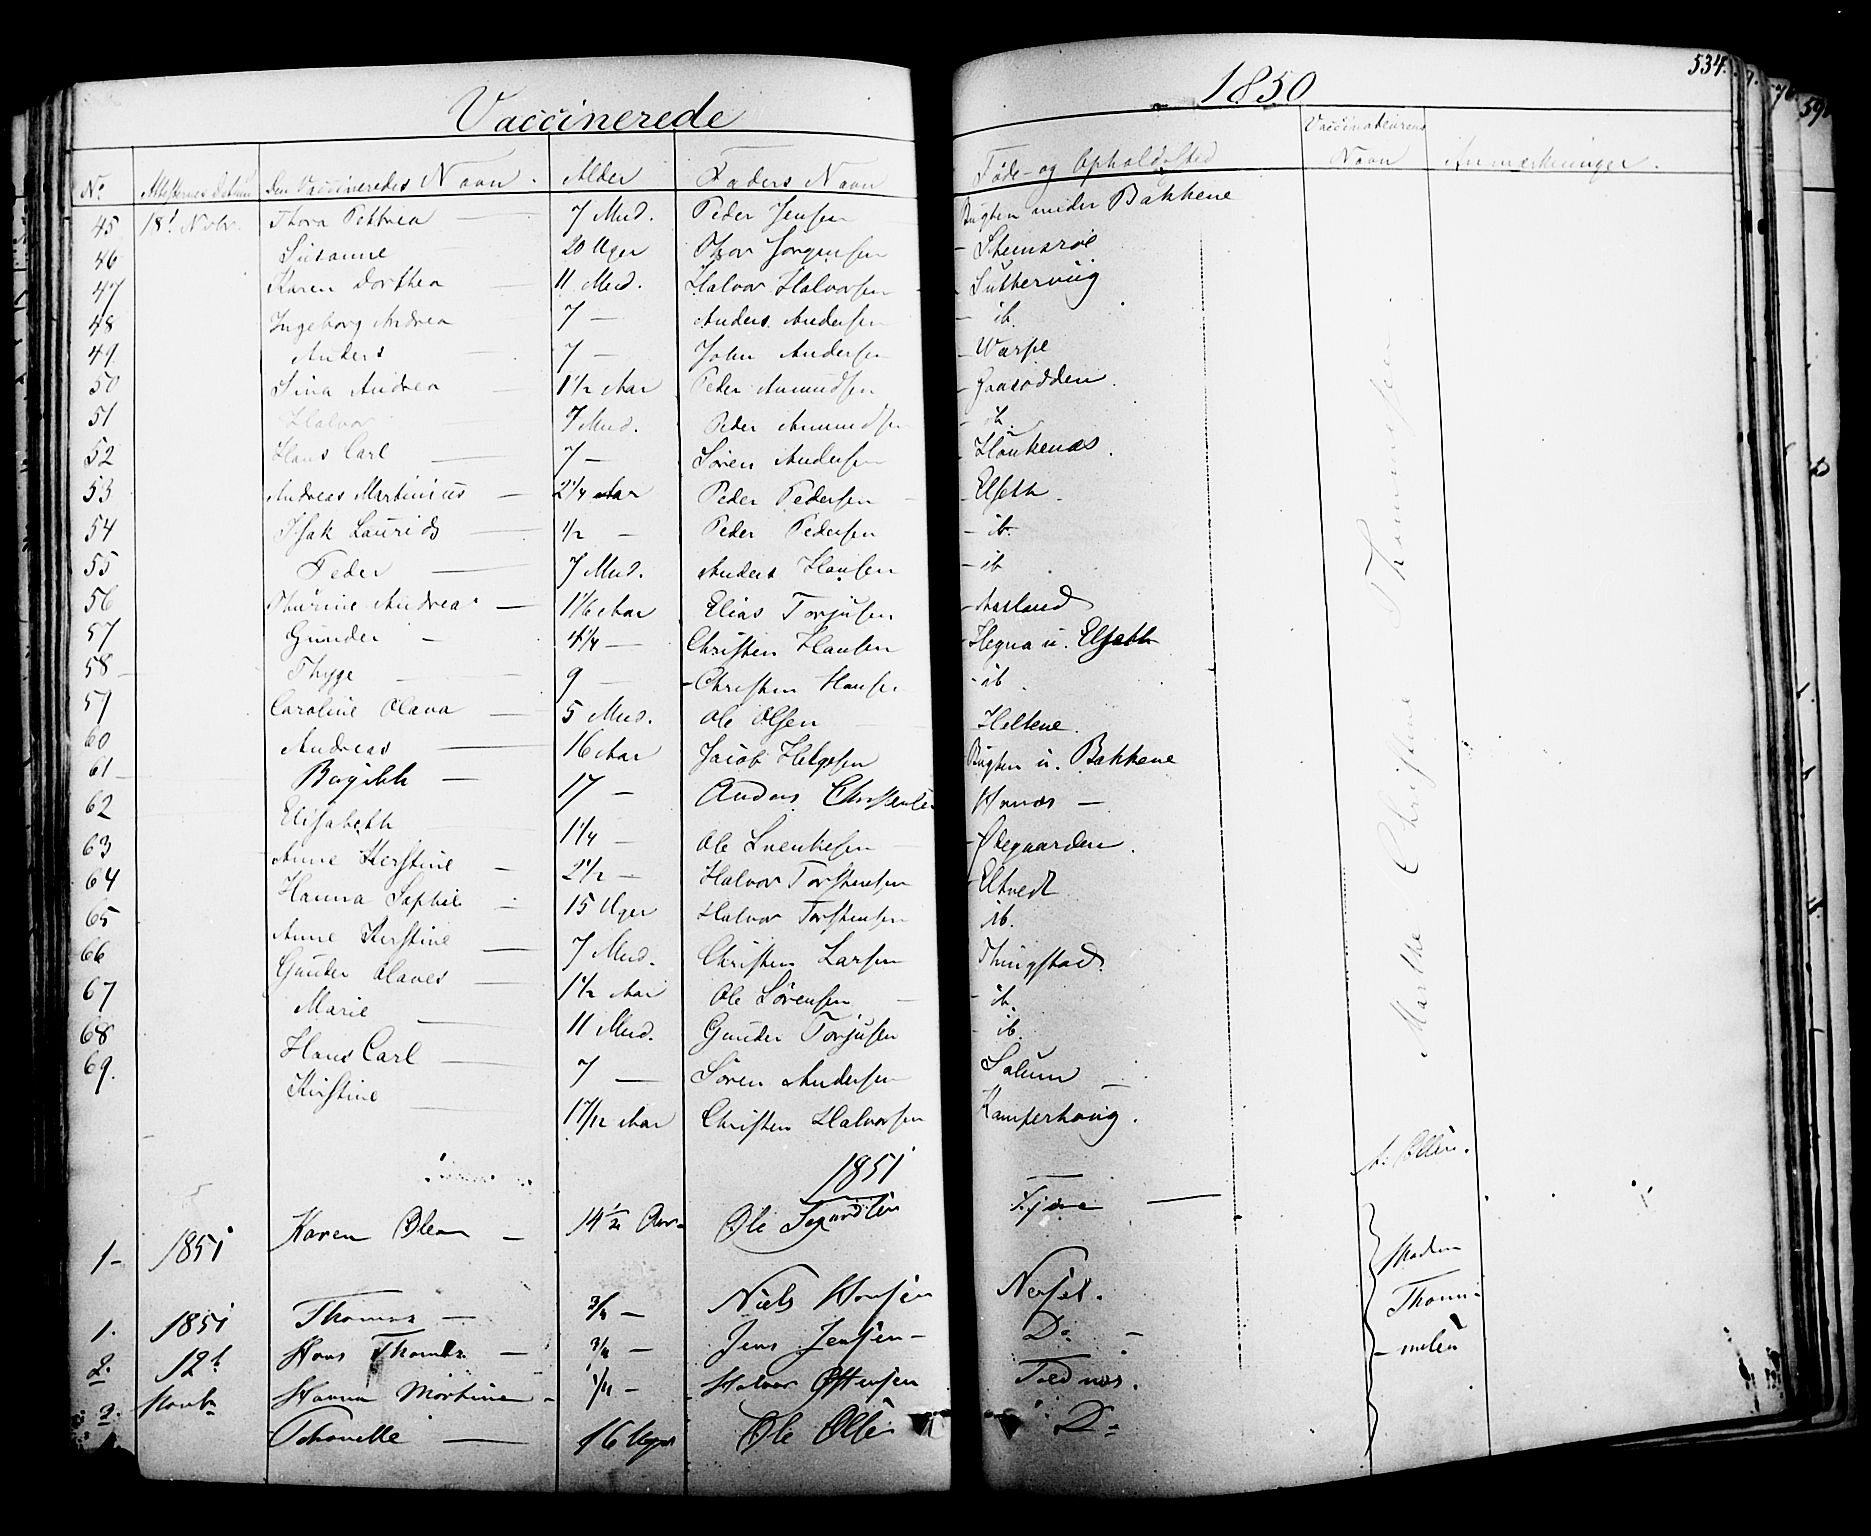 Vaccinerede
1850
534.
No Attesternes Datum Den Vaccineredes Navn. Alder Faders Navn Føde- og Opholdssted Vaccinateurens Navn Anmærkninger.
45 18. Novbr. Thora Pettrea 7 Mnd. Peder Jensen Bugten under Bakkene
46 Susanne 20 Uger Thor Jørgensen - Stensrøe
47 Karen Dorthea 11 Mnd. Halvor Halvorsen
48 Ingeborg Andrea 7 - Anders Andersen - ib.
49 Anders 7 - John Andersen - Warpe
50 Sina Andrea 1 1/2 Aar Peder Amundsen - Graaodden.
51 Halvor 7 Mnd. Peder Amundsen - ib.
52 Hans Carl 7 - Søren Andersen - Haukenæs.
53 Andreas Martinius 2 1/4 Aar Peder Pedersen - Elseth.
54 Isak Laurids 1/2 - Peder Pedersen - ib.
55 Peder 7 Mnd. Anders Hansen - ib
56 Thurine Andrea 1 1/6 Aar Elias Torjusen - Aasland
57 Gunder - 4 1/4 - Christen Hansen - Hegna u. Elseth
58 - Thyge 9 - Christen Hansen - ib
59 Caroline Olava 5 Mnd. Ole Olsen - Heltene.
60 Andreas 16 Aar Jacob Helgesen Bugten u. Bakkene
61 - Bagithe 17 - Anders Christensen
62 Elisabeth 1 1/4 - Ole Svenkesen - Ødegaarden.
63 Anne Kerstine 2 1/2 - Halvor Torstensen - Eltvedt
64 Hanna Sophie 15 Uger Halvor Torstensen ib.
65 Anne Kerstine 7 Mnd. Christen Larsen Thingstad.
66 Gunder Olaves 1 1/2 Aar Ole Sørensen - ib.
67 Marie 11 Mnd. Gunder Torjusen - ib.
68 Hans Carl 7 - Søren Andersen Solum
69. Kirstine 1 7/12 Aar Christen Halvorsen Kamperhoug.
Marthe Christine Thommesen
A: Ollen.
1851
1 - 1851 Karen Olea - 14 1/2 Aar Ole
1. 1851 Thomas - 3/4 - Niels Hansen Nerset.
2. 12t Hans Thomas - 3/4 - Jens Jensen - Do -
3. Novbr Hanna Martine - 1/4 - Halvor Ostensen
16 Uger Ole Olsen Do
Madm Thom-
- mesen